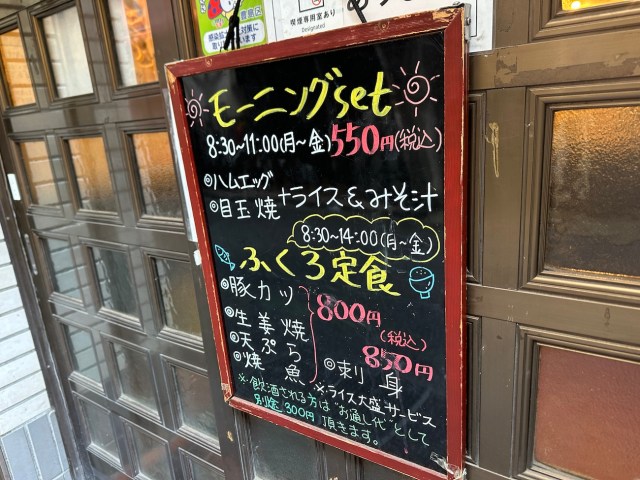 豊島区
感染拡大対策に
取り組んでいます
喫煙専用室あり
Designated
モーニングset
8:30~11:00(月~金)550円(税込)
◎ハムエッグ
◎目玉焼+ライス&みそ汁
8:30~14:00(月~金)
ふくろ定食
◎豚カツ
◎生姜焼
◎天ぷら
◎焼魚
800円
(税込)
850円
◎刺身
※ライス大盛サービス
※飲酒される方は"お通し代"として
別途300円頂きます。